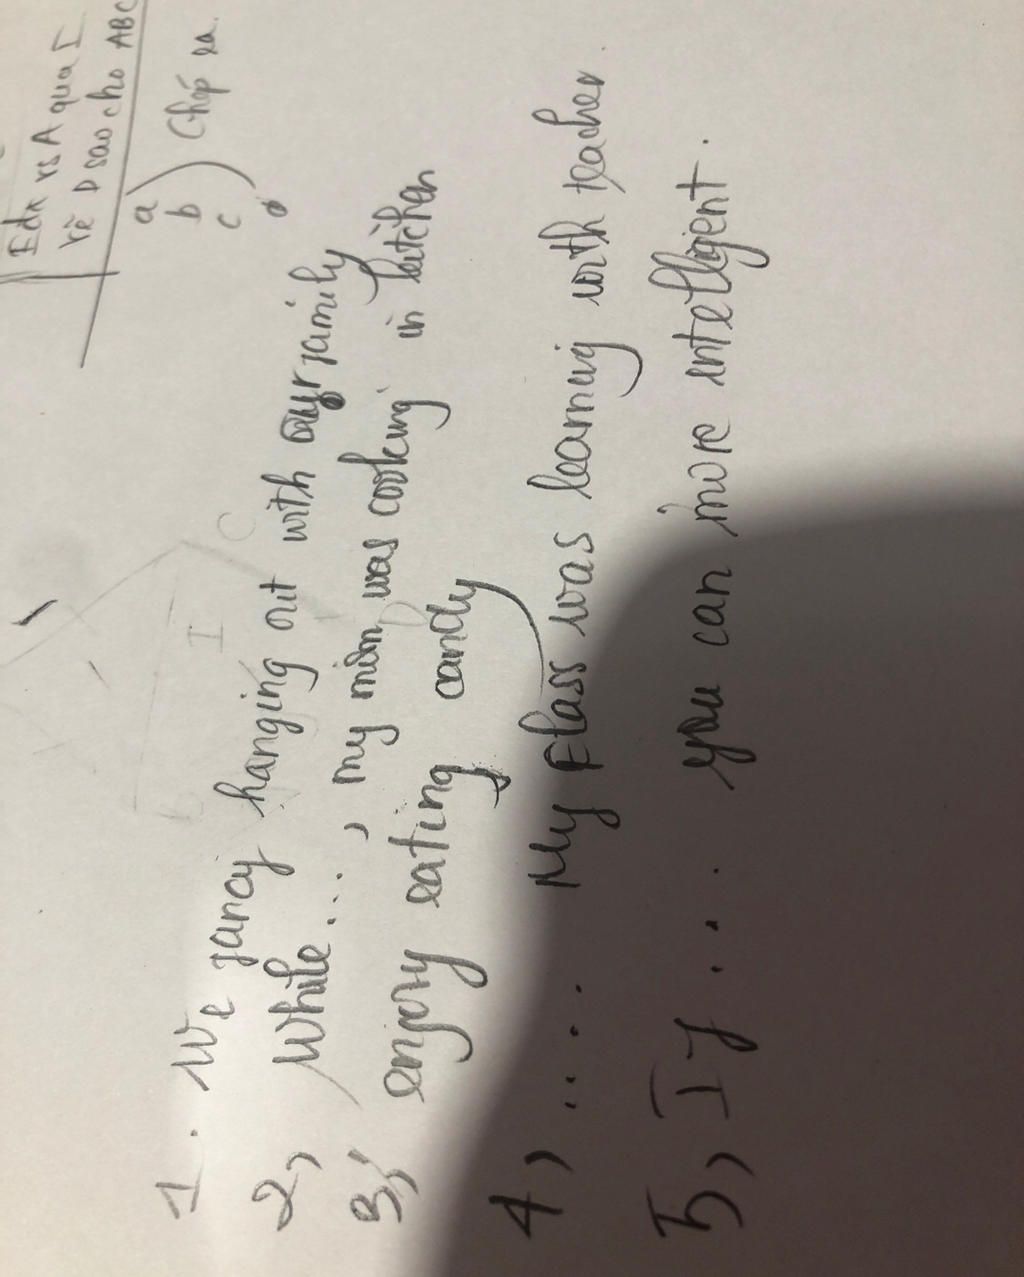 Iđx vs A qua I
vẽ D sao cho ABC
a
b ) Chép ra.
c
1. We fancy hanging out with our family
2, While..., my mom was cooking in kitchen
3, enjory eating candy
4, .... My class was learning with teacher
5, If ... you can more intelligent.
I
C